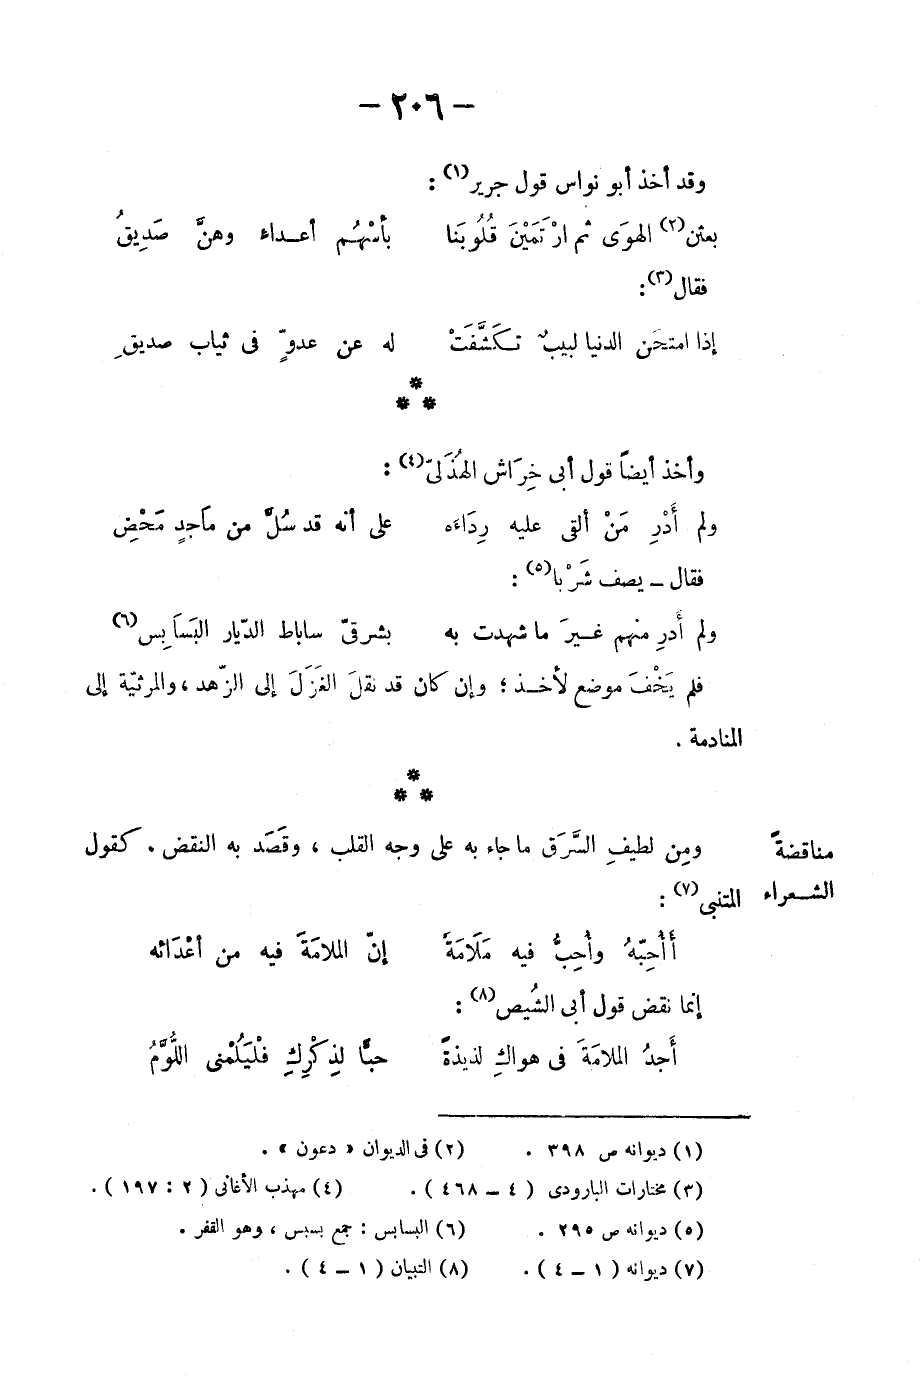 — ٢٠٦ —
وقد أخذ أبو نواس قول جرير(١) :
بعثن(٢) الهوَى ثم ارْتَمَيْنَ قُلُوبَنَا بأسْهُم أعـداء وهنَّ صَدِيقُ
فقال(٣):
إذا امتحَن الدنيا لبيبٌ تكَشَّفَتْ له عن عدوٍّ فى ثياب صديقِ
*
* *
وأخذ أيضاً قول أبى خِرَاش الهُذَلىّ(٤) :
ولم أَدْرِ مَنْ ألقى عليه رِدَاءَه على أنه قد سُلَّ من ماَجدٍ مَحْضِ
فقال ــ يصف شَرْبا(٥) :
ولم أَدرِ منهم غــيرَ ما شهدت به بشرقىّ ساباط الدّيار البَسَابِس(٦)
فلم يَخْفَ موضع لأخـذ ؛ وإن كان قد نقلَ الغَزَلَ إلى الزّهد ، والمرثيّة إلى
المنادمة .
*
* *
مناقضةً ومِن لطيفِ السَّرَق ما جاء به على وجه القلب ، وقَصَد به النقض . كقول
الشـعراء المتنبى(٧) :
أَأُحِبّهُ وأُحِبُّ فيه مَلَامَةً إنّ الملامَةَ فيه من أعْدَائه
إنما نقض قول أبى الشيص(٨) :
أَجدُ الملامَةَ فى هواكِ لذيذةً حبًّا لذِكْرِكِ فلْيَلُمْنى اللُّوَّمُ
(١) ديوانه ص ٣٩٨ . (٢) فى الديوان « دعون » .
(٣) مختارات البارودى ( ٤ ــ ٤٦٨ ) . (٤) مهذب الأغانى ( ٢ : ١٩٧ ) .
(٥) ديوانه ص ٢٩٥ . (٦) البسابس : جمع بسبس ، وهو القفر .
(٧) ديوانه ( ١ ــ ٤ ) . (٨) التبيان ( ١ ــ ٤ ) .